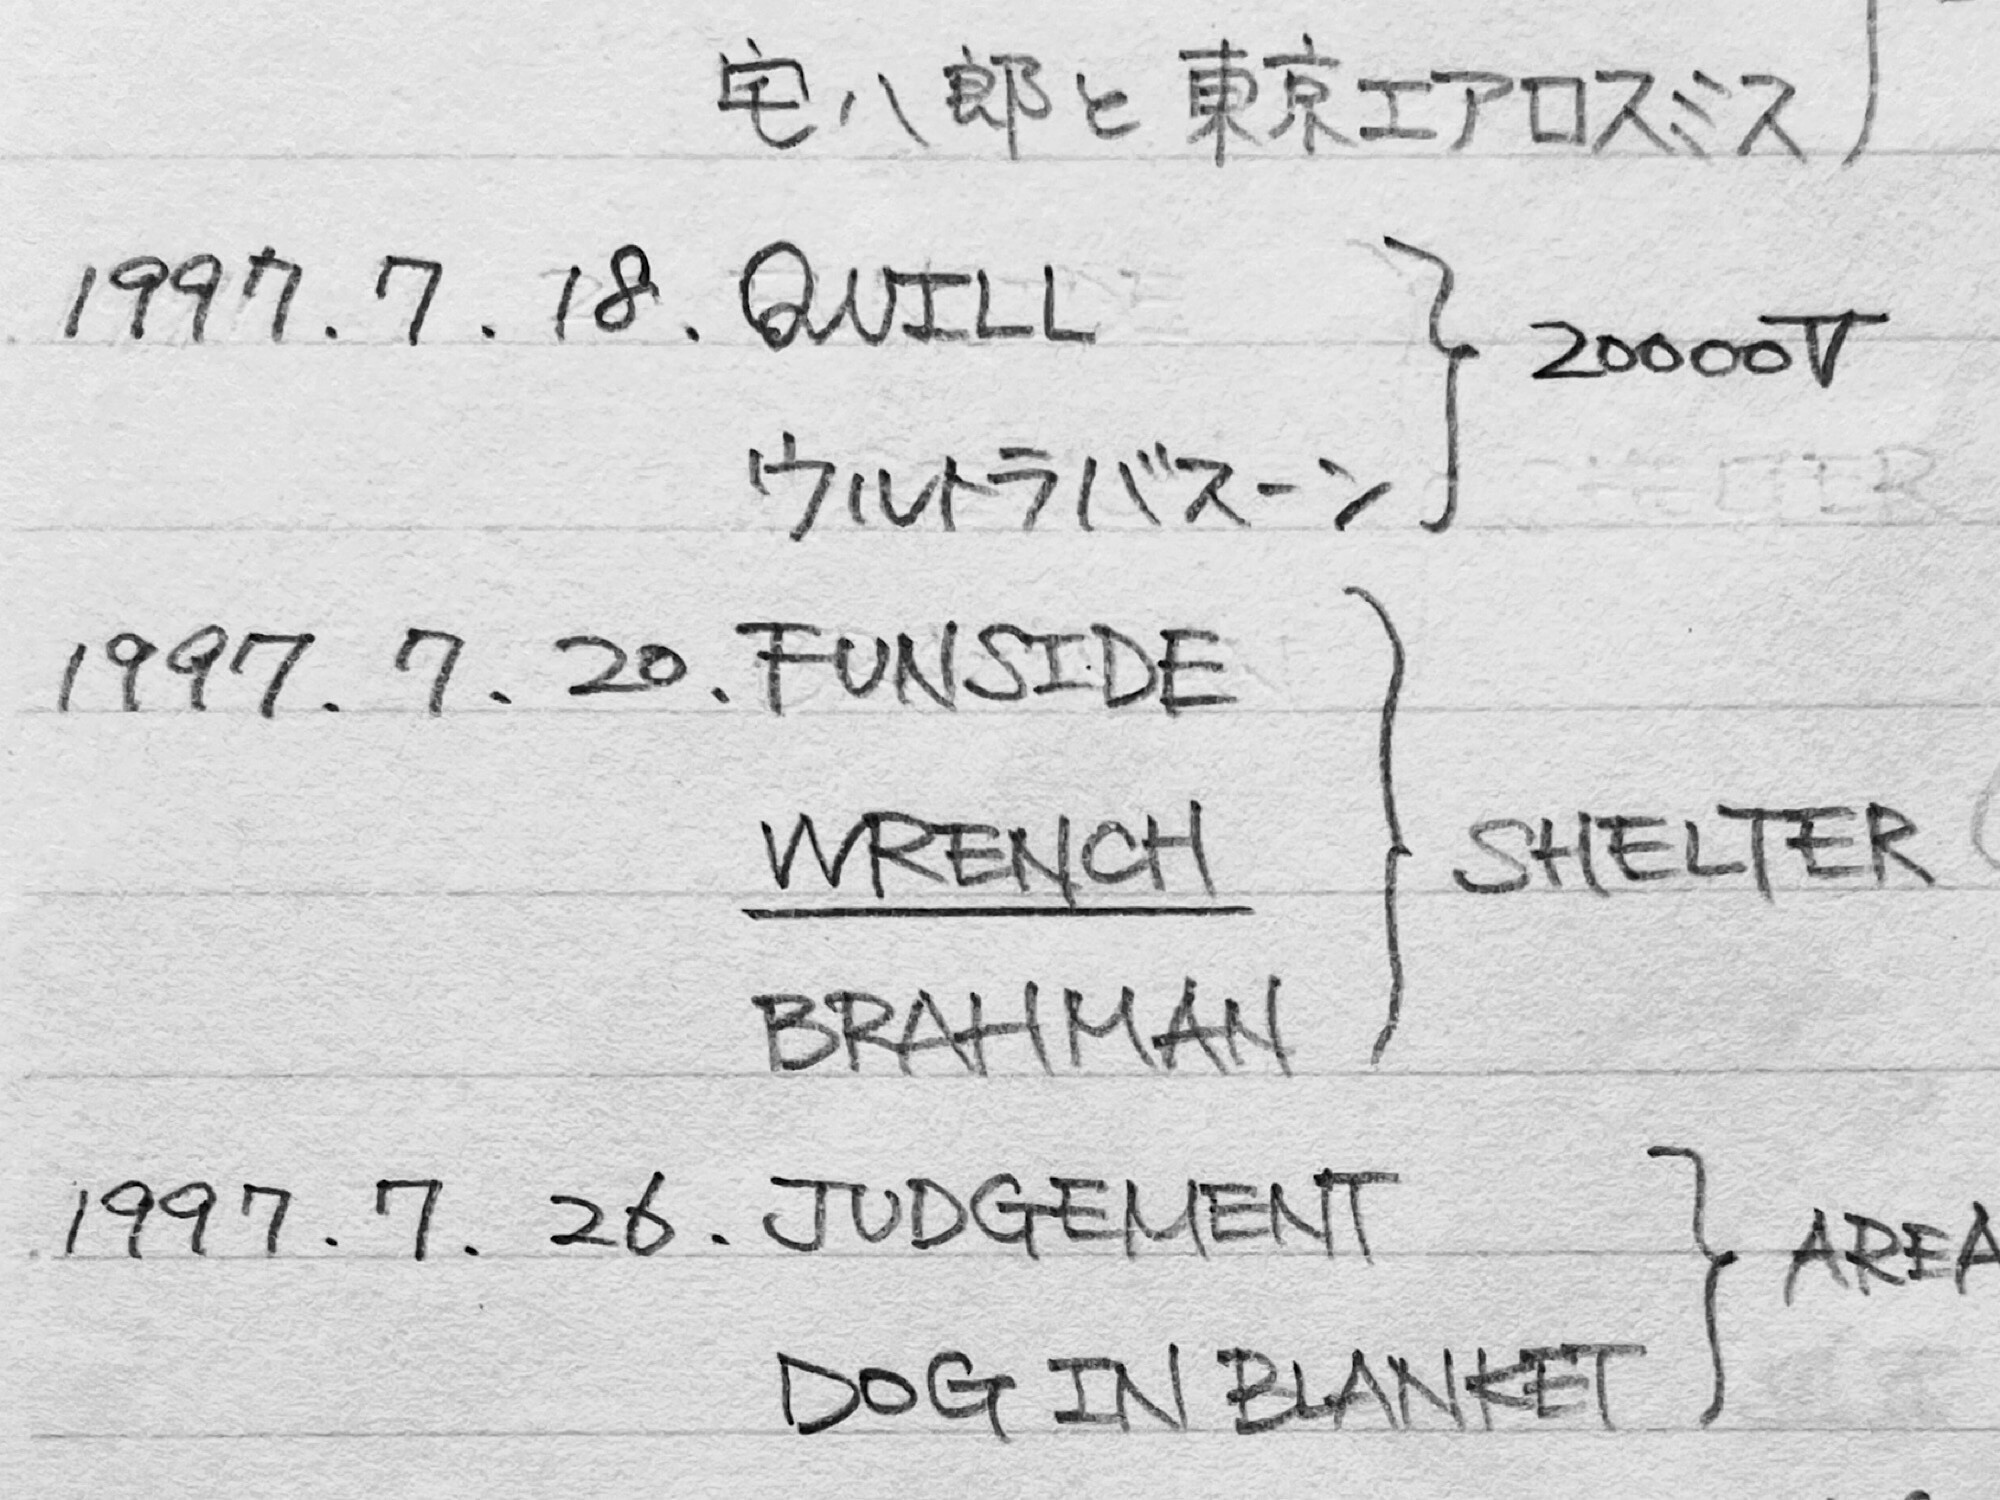 宅八郎と東京エアロスミス
1997.7.18. QUILL
20000V
ウルトラバスーン
1997.7.20. FUNSIDE
WRENCH
SHELTER
BRAHMAN
1997.7.26. JUDGEMENT
AREA
DOG IN BLANKET